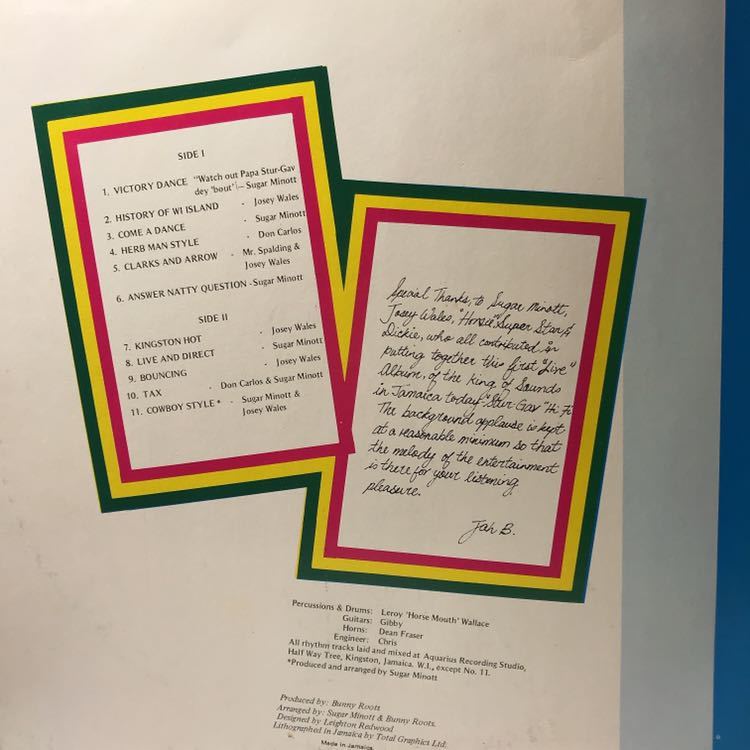 SIDE I
1. VICTORY DANCE "Watch out Papa Stur-Gav
dey 'bout' — Sugar Minott
2. HISTORY OF WI ISLAND - Josey Wales
3. COME A DANCE - Sugar Minott
4. HERB MAN STYLE - Don Carlos
5. CLARKS AND ARROW - Mr. Spalding &
Josey Wales
6. ANSWER NATTY QUESTION - Sugar Minott
SIDE II
7. KINGSTON HOT - Josey Wales
8. LIVE AND DIRECT - Sugar Minott
9. BOUNCING - Josey Wales
10. TAX - Don Carlos & Sugar Minott
11. COWBOY STYLE* - Sugar Minott &
Josey Wales
Special Thanks, to Sugar Minott,
Josey Wales, "Horsie" Super Star, &
Dickie, who all contributed in
putting together this first "Live"
Album, of the King of Sounds
in Jamaica today "Stur-Gav" Hi Fi
The background applause is kept
at a reasonable minimum so that
the melody of the entertainment
is there for your listening
pleasure.
Jah B.
Percussions & Drums: Leroy 'Horse Mouth' Wallace
Guitars: Gibby
Horns: Dean Fraser
Engineer: Chris
All rhythm tracks laid and mixed at Aquarius Recording Studio,
Half Way Tree, Kingston, Jamaica. W.I., except No. 11.
*Produced and arranged by Sugar Minott
Produced by: Bunny Roots
Arranged by: Sugar Minott & Bunny Roots.
Designed by Leighton Redwood
Lithographed in Jamaica by Total Graphics Ltd.
Made in Jamaica.